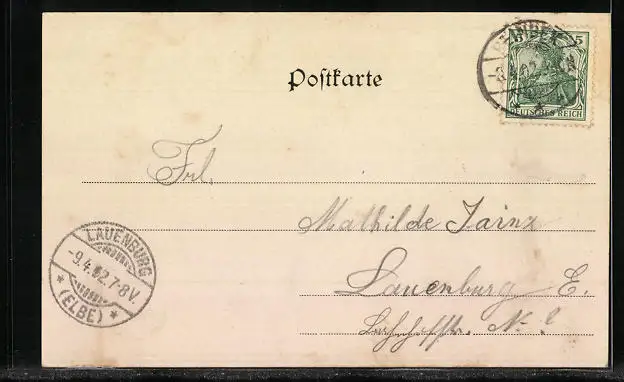 Postkarte
5
DEUTSCHES REICH
Frl.
Mathilde Jainz
Lauenburg E.
No.
LAUENBURG
-9.4.02.7-8V.
* (ELBE) *